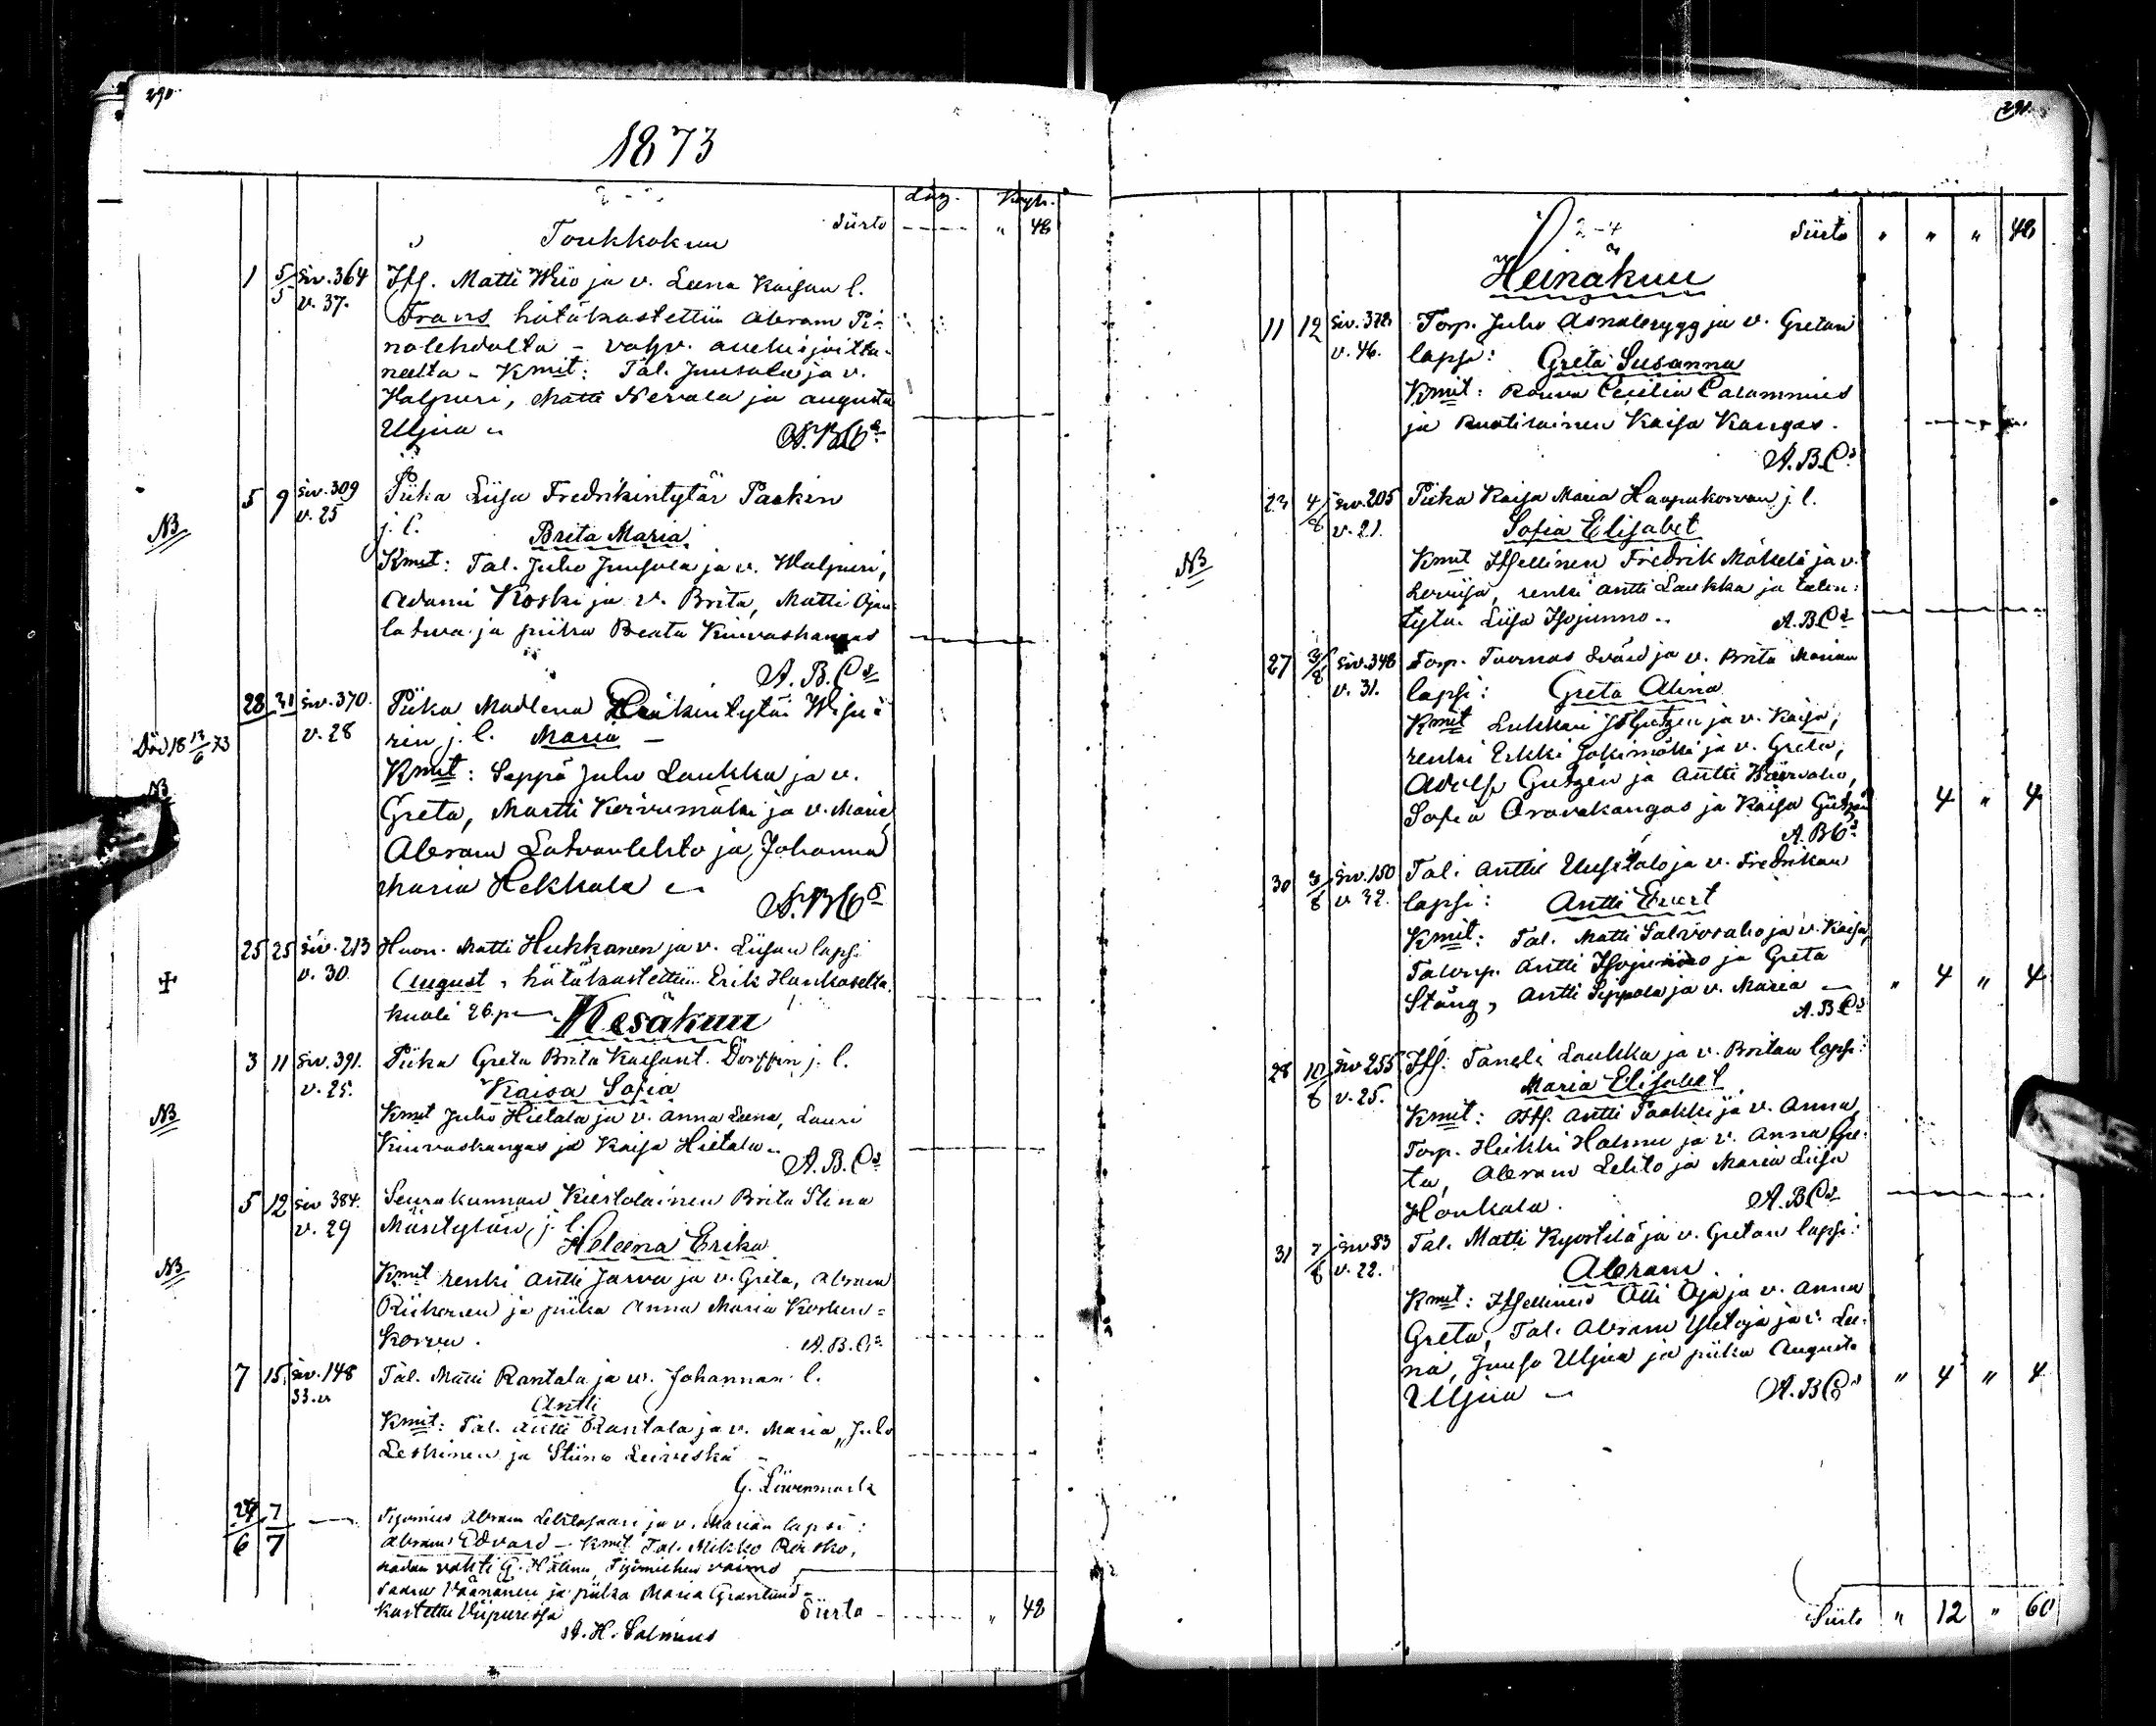 290
1873
Läz. Kugh.
Siirto " 48
Toukkokuu
1 5/5 siv. 364 Itll. Matti Wiio ja v. Leena Kaisan l.
v. 37. Frans hätäkastettiin Abram Pi-
nolehdolta - vahv. 
neelta - Kmit: Tal. Juusola ja v.
Walpuri, Matti Nevala ja Augusta
Uljua A.B.Cs
NB 5 9 siv. 309 Piika Liisa Fredrikintytär Paakin
v. 25 j. l. Brita Maria
Kmit: Tal. Juho Juusola ja v. Walpuri,
Adami Koski ja v. Brita, Matti Ojan-
latwa ja piika Beata Kiurvaskangas
A.B.Cs
28 31 siv. 370. Piika Madlena Heikintytär
v. 28 rin j. l. Maria -
Död 18 13/6 73
Kmit: Seppä Juho Laukka ja v.
NB Greta, Martti Korvenmäki ja v. Maria
Abram Latvanlehto ja Johanna
Maria Hekkala A.B.Cs
25 25 siv. 213 Huon. Matti Hukkanen ja v. Liisan lapsi
v. 30 August, hätäkastettiin Erik Hankaselta
kuoli 26 p
Kesäkuu
3 11 siv. 391. Piika Greta Brita Kaisant. Dorffin j. l.
v. 25. Kaisa Sofia
NB Kmit Juho Hietala ja v. Anna Leena, Lauri
Kiurvaskangas ja Kaisa Hietala
A.B.Cs
5 12 siv 384. Seurakunnan Kiertolainen Brita Stina
v. 29 Mäntytärin, j. l.
Heleena Erika
NB Kmit renki Antti Jarva ja v. Greta, Abram
Riikonen ja piika Anna Maria Kosken-
korva. A.B.Cs
7 15 siv. 148 Tal. Matti Rantala ja v. Johannan l.
33. v Antti
Kmit: Tal. Antti Rantala ja v. Maria, Juho
Leskinen ja Stiina Leiviskä -
G. Löwenmark
24/6 7/7 Työmies Abram Lehtosaari ja v. Marian lapsi:
Abram Edvard - Kmit Tal. Mikko Reisko,
vahti G. Hälinn, Työmiehen vaimo
Saara Väänänen ja piika Maria Granlund -
kastettu Viipurissa Siirto " 48
A. H. Salmius
291.
Siirto " " " 48
Heinäkuu
11 12 siv. 378 Torp. Juho Asnalrygg ja v. Gretan
v. 46. lapsi: Greta Susanna
Kmit: Rouva Cecilia Calamnius
ja Ruotilainen Kaisa Kangas.
A.B.Cs
23 4/8 siv. 205 Piika Kaisa Maria Haapakorvan j. l.
v. 21. Sofia Elisabet
NB Kmit Itsellinen Fredrik Mäkelä ja v.
Loviisa, renki Antti Laukka ja talon-
tytär Liisa Isojunno. A.B.Cs
27 3/8 siv. 348 Torp. Tuomas Svärd ja v. Brita Marian
v. 31. lapsi: Greta Alina
Kmit Lukkari J. Gutzen ja v. Kaisa,
renki Erkki Jokimäki ja v. Greta,
Adolf Gutzen ja Antti
Sofia Oravakangas ja Kaisa Gutzen 4 " 4
A.B.Cs
30 3/8 siv. 150 Tal. Antti Uusitalo ja v. Fredrikan
v. 32. lapsi: Antti Evert
Kmit: Tal. Matti Salvosaho ja v. Kaisa,
Antti Isojunno ja Greta
Stång, Antti Seppälä ja v. Maria - " 4 " 4
A.B.Cs
28 10/8 siv 255 Itll: Taneli Laukka ja v. Britan lapsi:
v. 25. Maria Elisabet
Kmit: Itll. Antti Paakki ja v. Anna,
Torp. Heikki Halmu ja v. Anna Gre-
ta, Abram Lehto ja Maria Liisa
Honkala. A.B.Cs
31 7/8 siv 83 Tal. Matti Kyöstilä ja v. Gretan lapsi:
v. 22. Abram
Kmit: Itsellinen Olli Oja ja v. Anna
Greta, Tal. Abram Ylioja ja v. Lee-
na, Juuso Uljua ja piika Augusta
Uljua - A.B.Cs " 4 " 4
Siirto " 12 " 60